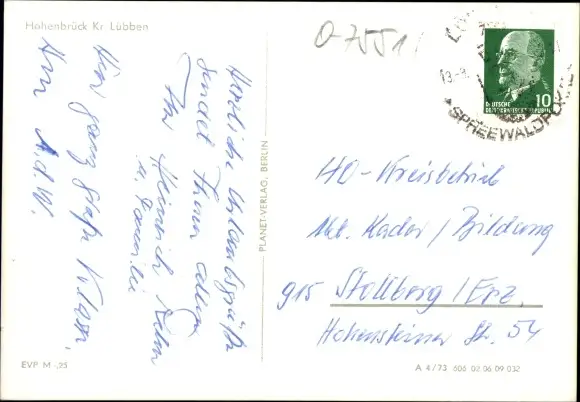 Hohenbrück Kr Lübben
O-7551
10
DEUTSCHE
DEMOKRATISCHE REPUBLIK
SPREEWALDPOKAL
Herzliche Urlaubsgrüße
sendet Ihnen allen
Ihr Heinrich
u. Familie
Hier ganz große Klasse.
A.d.W.
PLANET-VERLAG, BERLIN
HO-Kreisbetrieb
Abt. Kader/Bildung
915 Stollberg/Erz.
Hohensteiner Str. 54
EVP M -,25
A 4/73 606 02 06 09 032